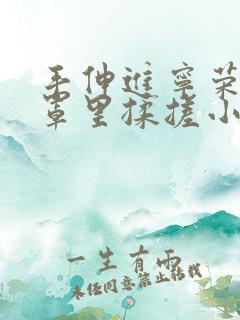 手伸进宁荣
罩里揉搓小
一生有雨
未经同意禁止转载